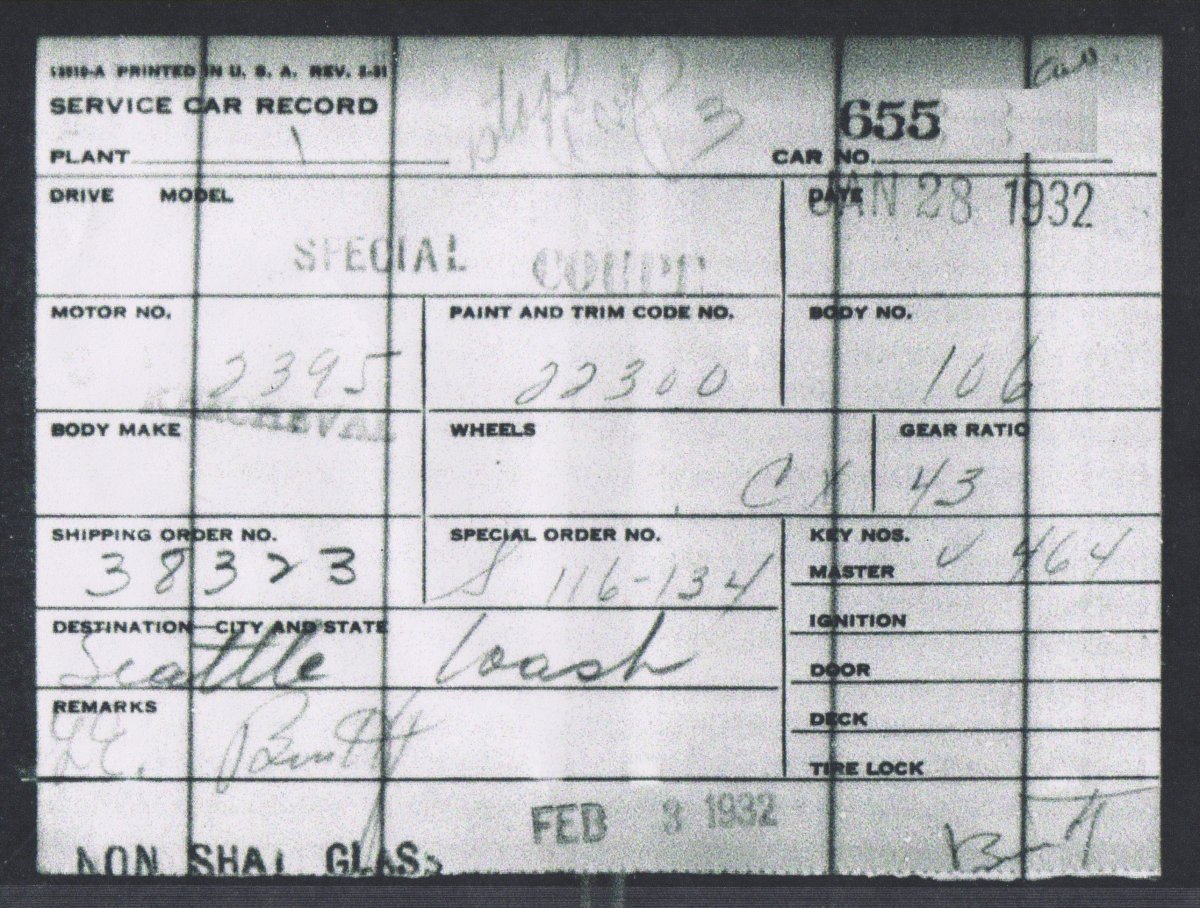 PRINTED IN U. S. A. REV. 5-31
SERVICE CAR RECORD
3
655
PLANT 1 CAR NO.
DRIVE MODEL DATE
JAN 28 1932
SPECIAL COUPE
MOTOR NO. PAINT AND TRIM CODE NO. BODY NO.
2395 22300 106
KERCHEVAL
BODY MAKE WHEELS GEAR RATIO
C X 43
SHIPPING ORDER NO. SPECIAL ORDER NO. KEY NOS.
38323 S 116-134
MASTER 464
DESTINATION—CITY AND STATE IGNITION
Seattle Wash
DOOR
REMARKS
DECK
TIRE LOCK
FEB 3 1932
NON SHAT GLASS